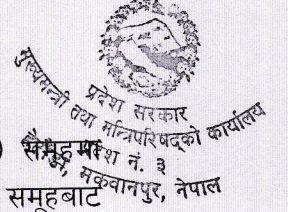 प्रदेश सरकार
मुख्यमन्त्री तथा मन्त्रिपरिषद्को कार्यालय
प्रदेश नं. ३
मकवानपुर, नेपाल
समूहबाट